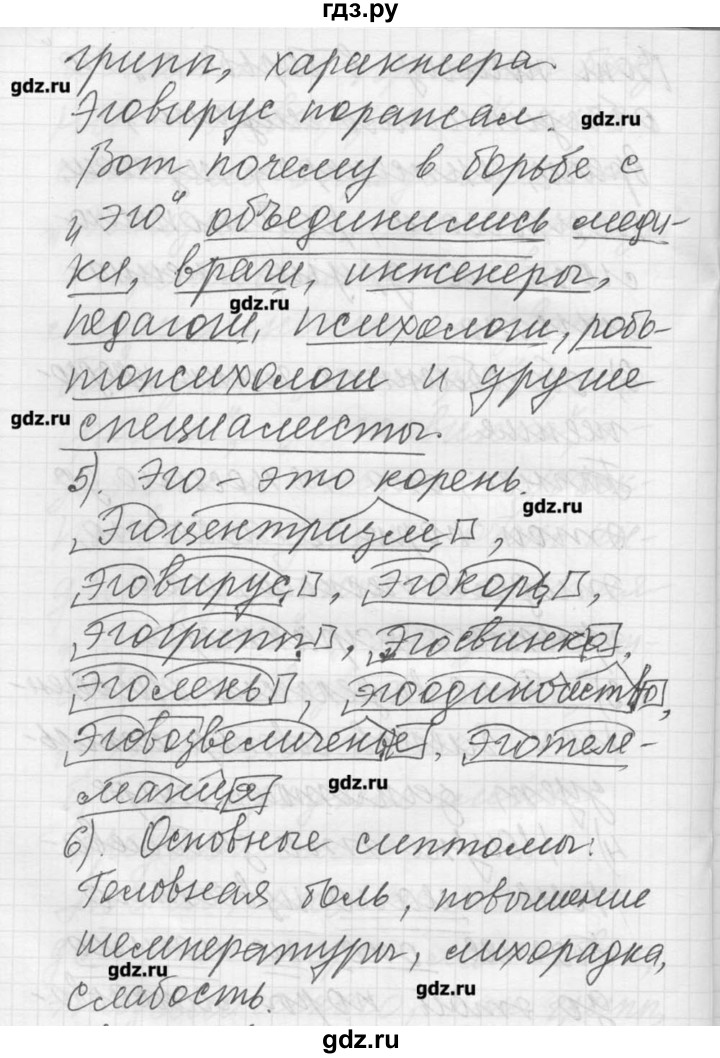 гдз.ру
грипп, характера.
gdz.ru
Эговирус поражал.
gdz.ru
Вот почему в борьбе с
„эго“ объединились меди-
ки, врачи, инженеры,
gdz.ru
педагоги, психологи, робо-
топсихологи и другие
gdz.ru
специалисты.
5). Эго – это корень.
gdz.ru
Эгоцентризм,
Эговирус, Эгокорь,
Эгогрипп, Эгосвинка,
Эголень, эгоодиночество,
Эговозвеличенье, Эготеле-
мания
gdz.ru
6). Основные симптомы:
Головная боль, повышение
температуры, лихорадка,
gdz.ru
слабость.
gdz.ru
gdz.ru